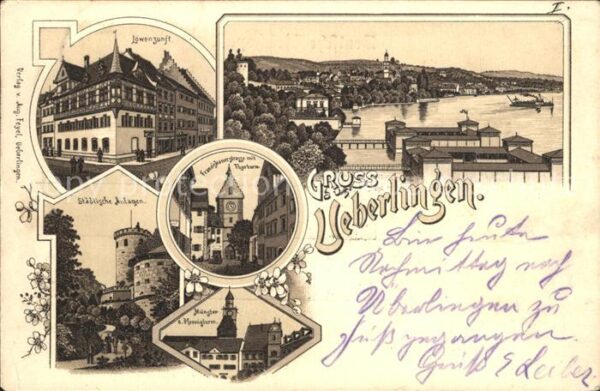 I.
Löwenzunft
Verlag v. Aug. Feyel, Ueberlingen.
Franziskanerstrasse mit
Thorturm.
Städtische Anlagen.
Gruss
Ueberlingen.
Münster
u. Pfennigturm.
Bin heute
Nachmittag nach
Überlingen zu
Fuß gegangen.
Gruß E